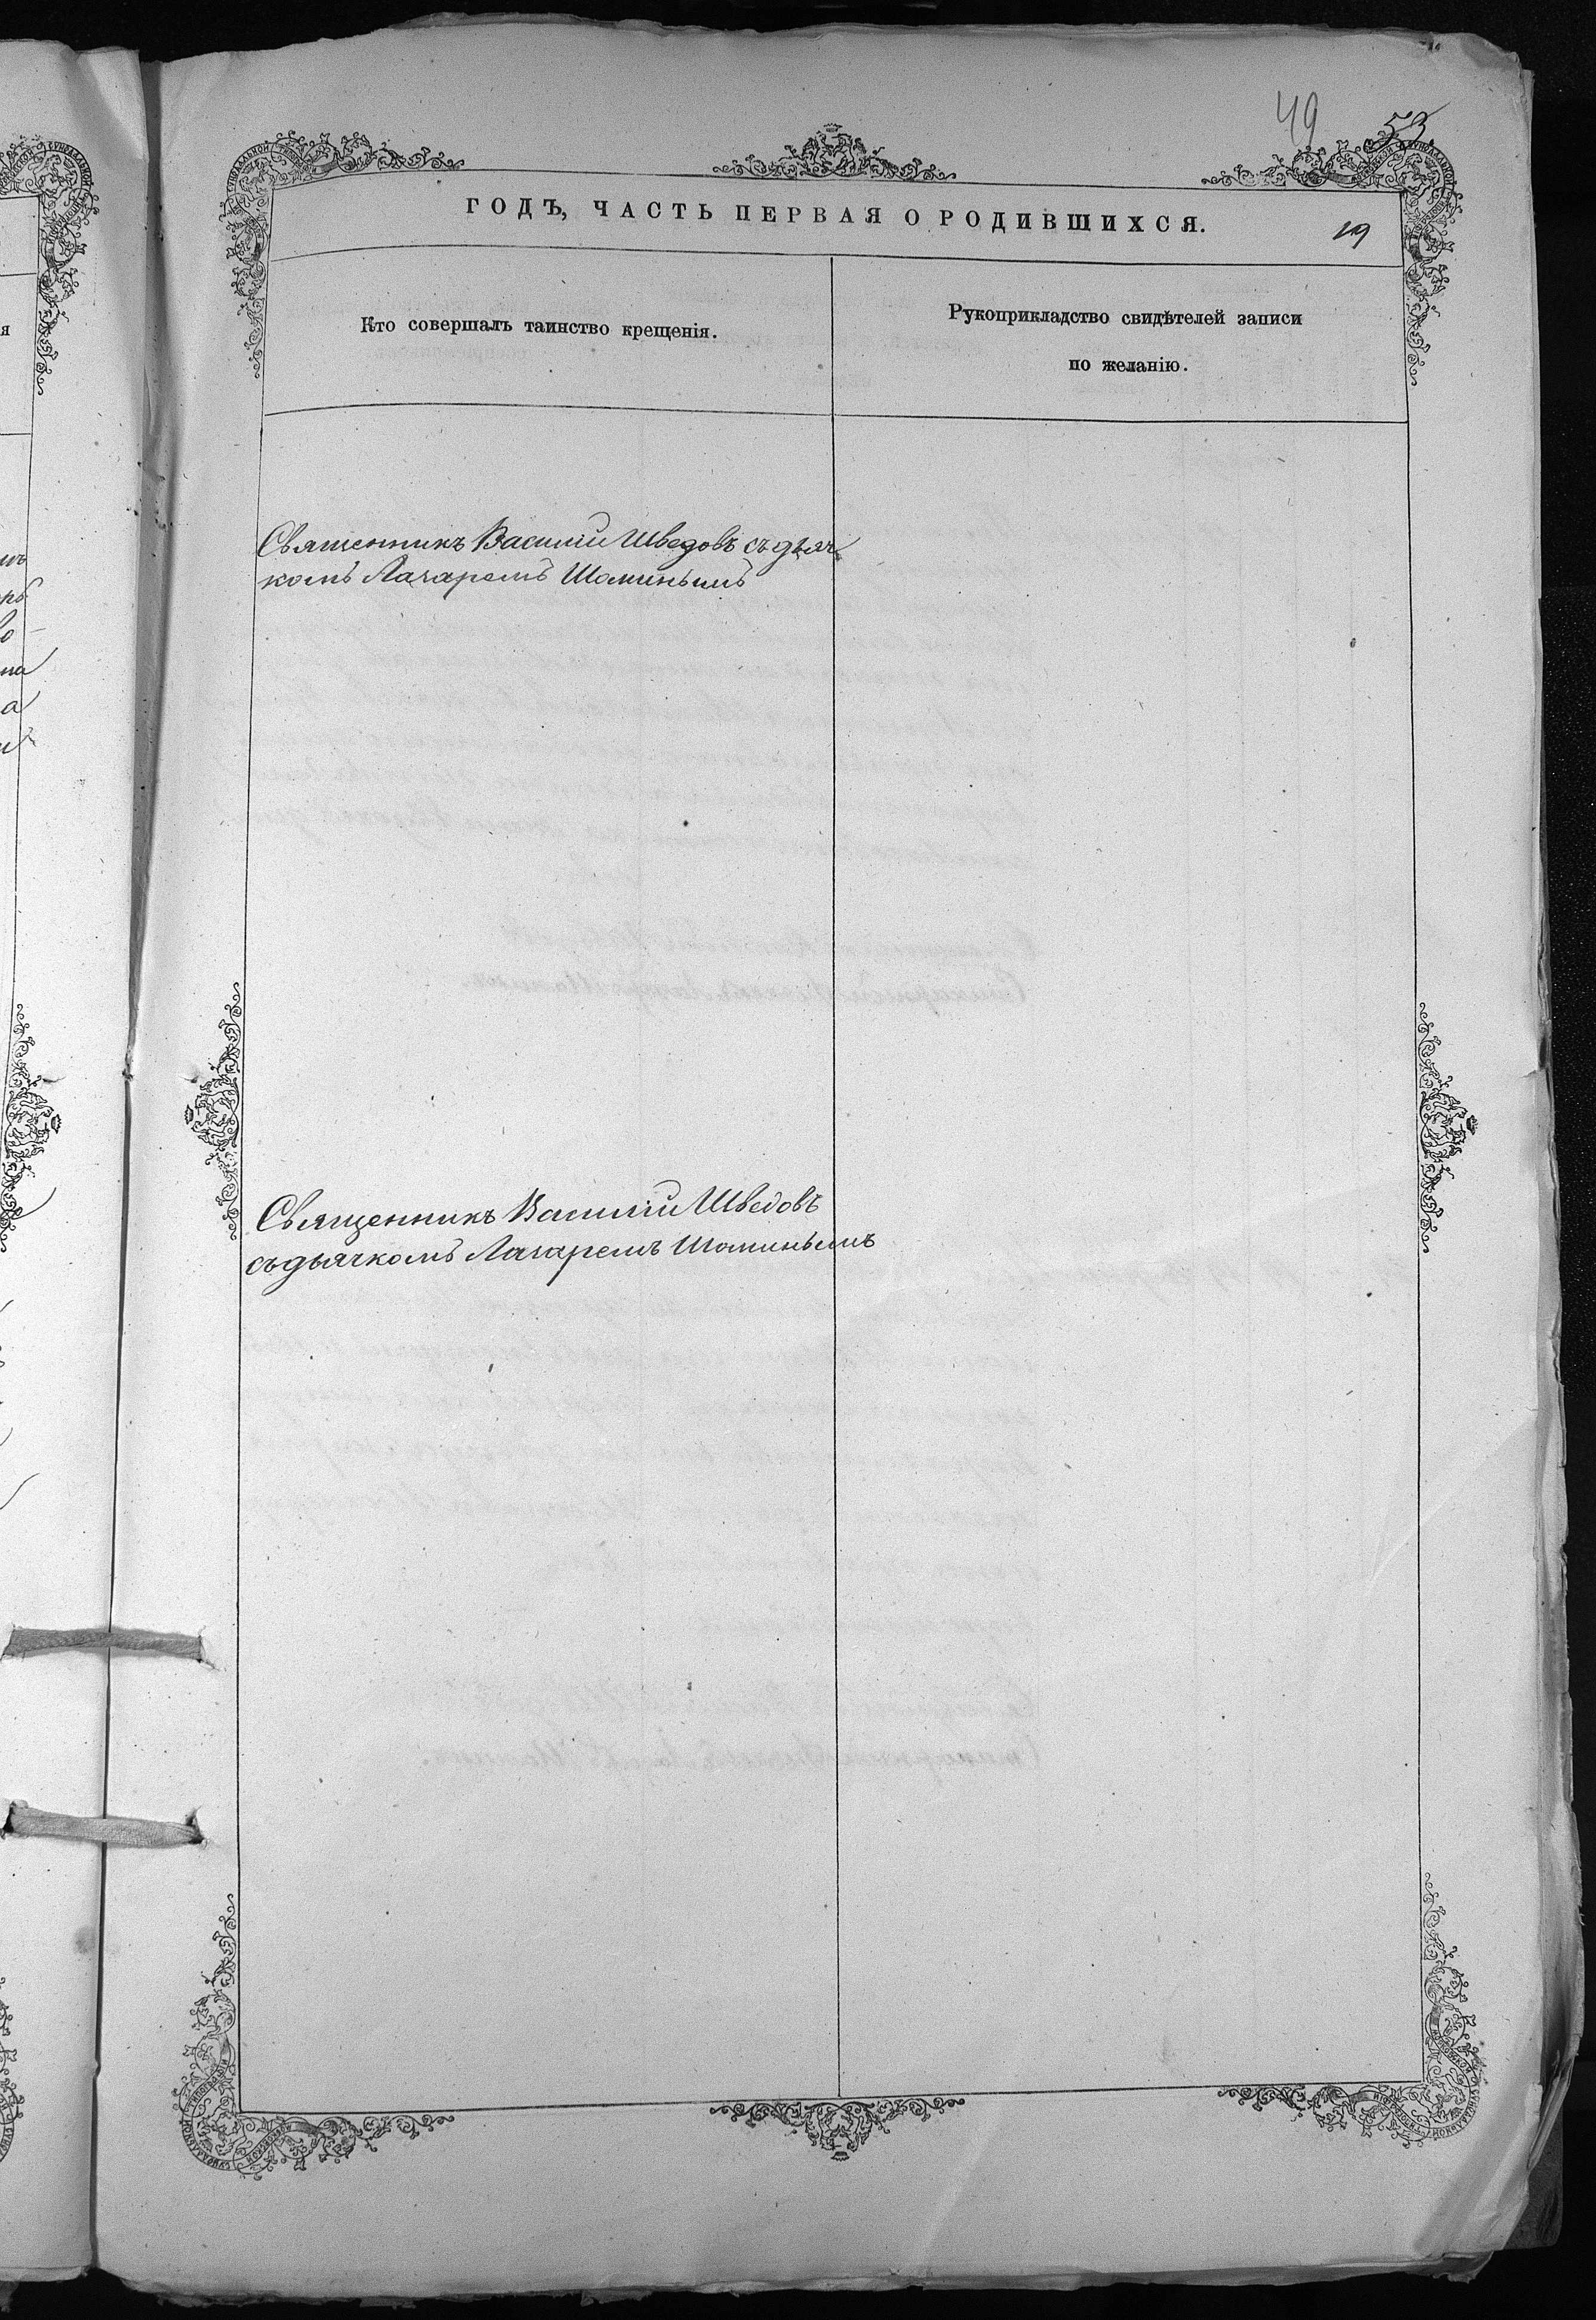 49 53
ГОДЪ, ЧАСТЬ ПЕРВАЯ О РОДИВШИХСЯ.
19
Кто совершалъ таинство крещенія.
Рукоприкладство свидѣтелей записи
по желанію.
Священникъ Василій Шведовъ съ дьяч
комъ Лазаремъ Шоминымъ
Священникъ Василій Шведовъ
съ дьячкомъ Лазаремъ Шоминымъ